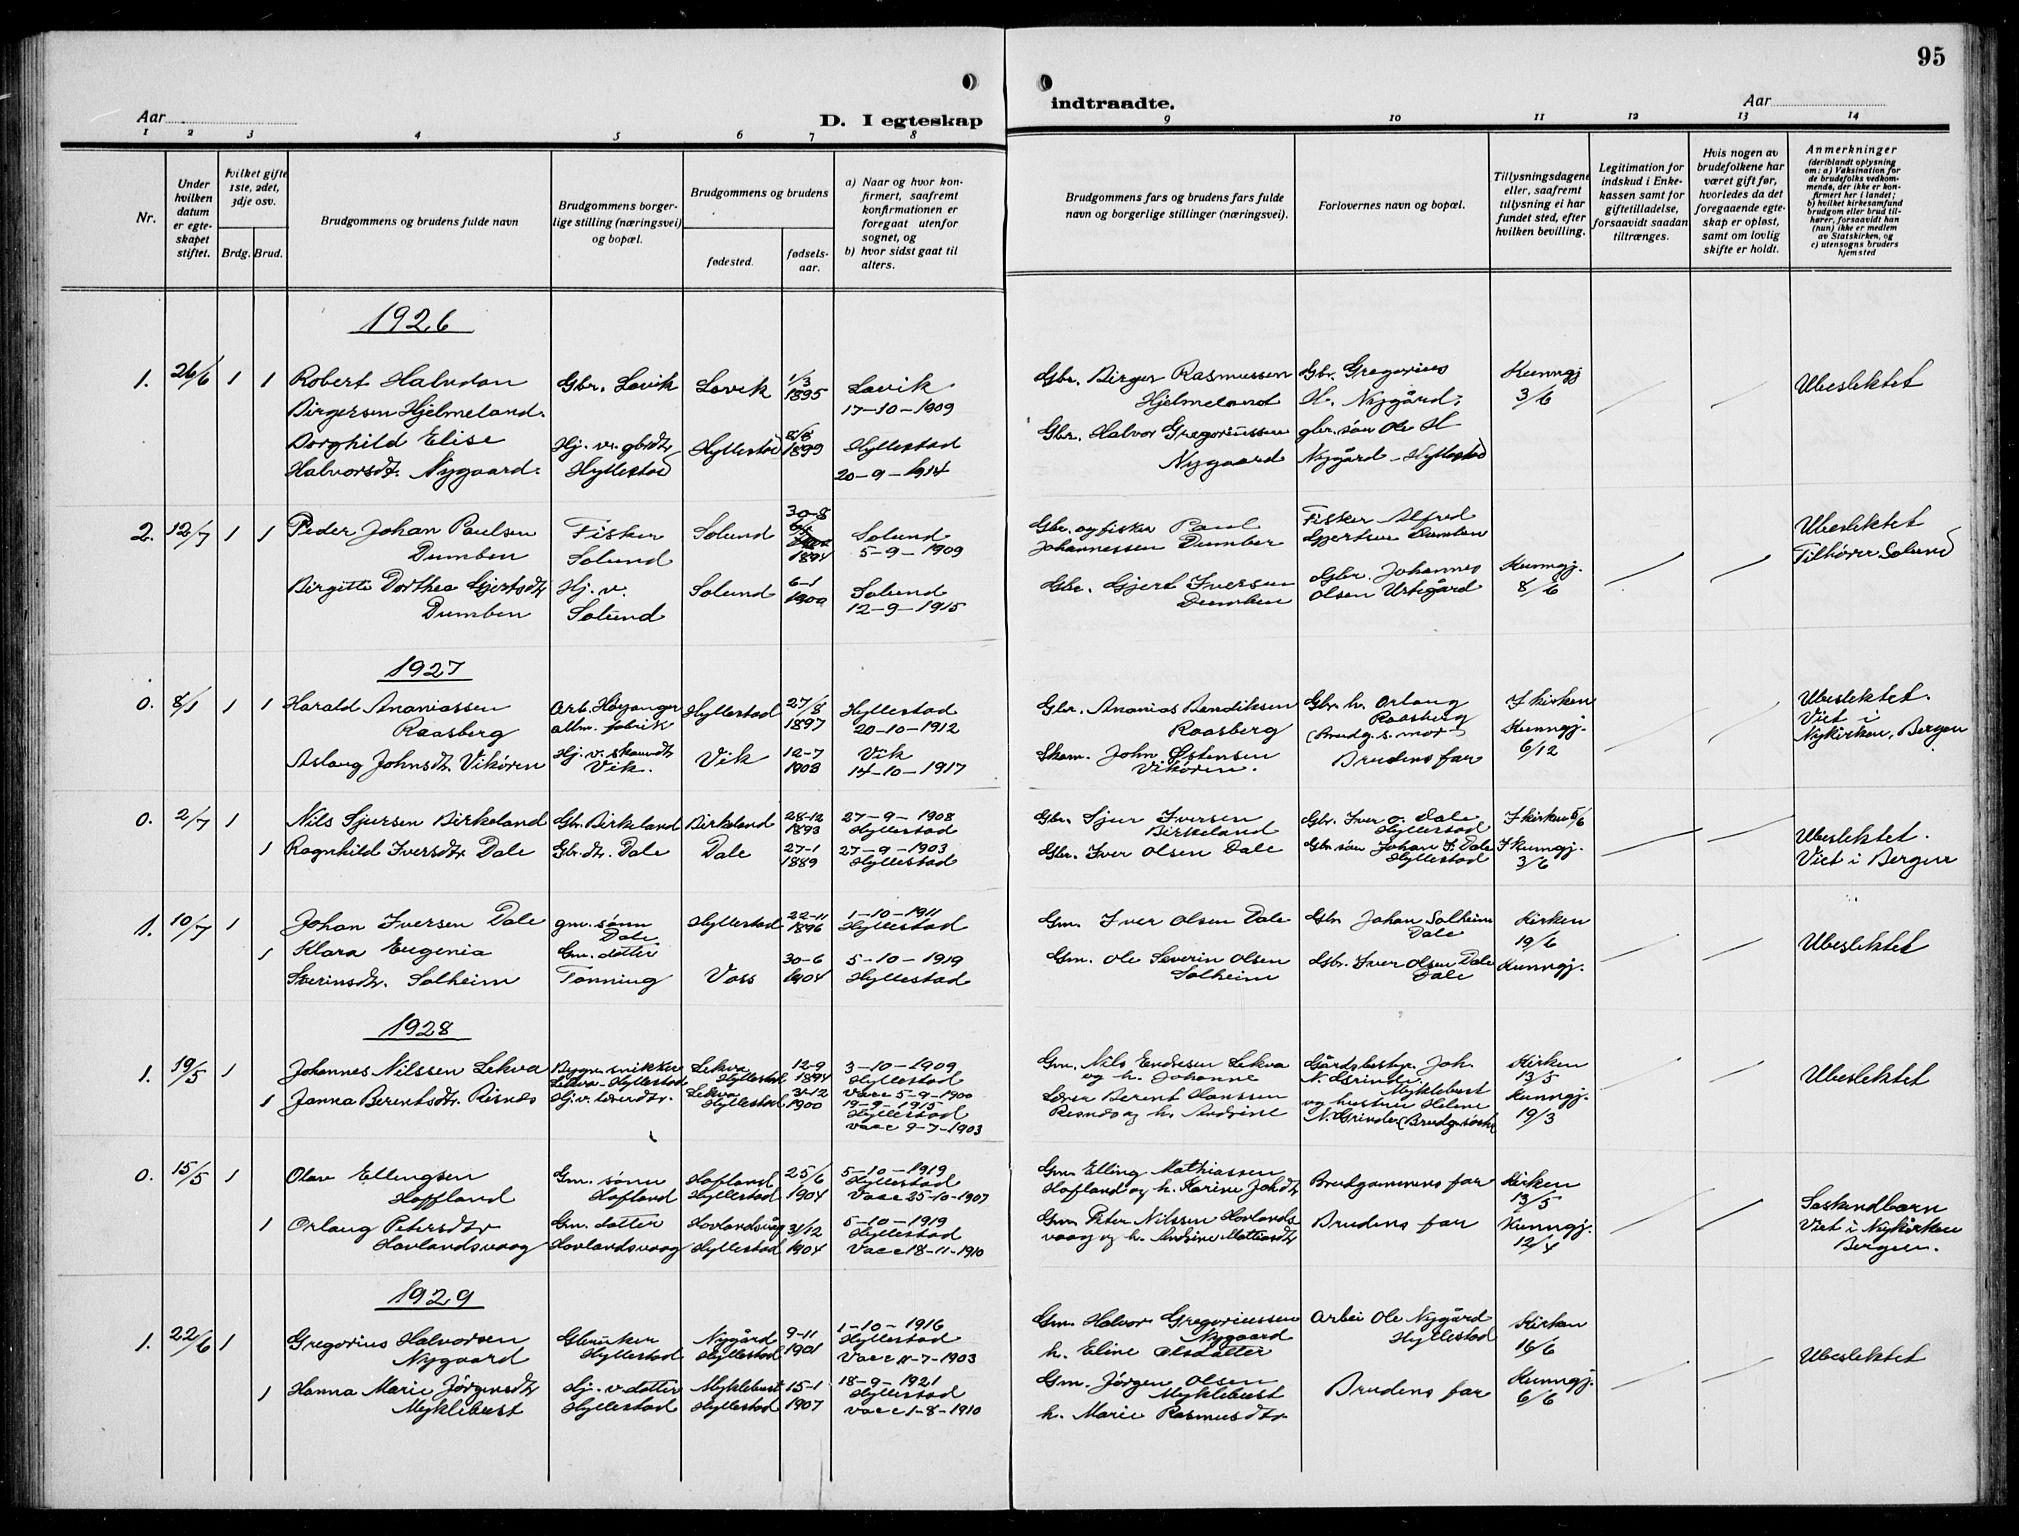 95
Aar
D. I egteskap
indtraadte.
Aar
1 2 3 4 5 6 7 8 9 10 11 12 13 14
Nr.
Under hvilken datum er egteskapet stiftet.
hvilket gifte 1ste, 2det, 3dje osv.
Brdg. Brud.
Brudgommens og brudens fulde navn
Brudgommens borgerlige stilling (næringsvei) og bopæl.
Brudgommens og brudens
fødested.
fødselsaar.
a) Naar og hvor konfirmert, saafremt konfirmationen er foregaat utenfor sognet, og
b) hvor sidst gaat til alters.
Brudgommens fars og brudens fars fulde navn og borgerlige stillinger (næringsvei).
Forlovernes navn og bopæl.
Tillysningsdagene eller, saafremt tillysning ei har fundet sted, efter hvilken bevilling.
Legitimation for indskud i Enkekassen samt for giftetilladelse, forsaavidt saadan tiltrænges.
Hvis nogen av brudefolkene har været gift før, hvorledes da det foregaaende egteskap er opløst, samt om lovlig skifte er holdt.
Anmerkninger
(deriblandt oplysning om: a) Vaksination for de brudefolks vedkommende, der ikke er konfirmert her i landet; b) hvilket kirkesamfund brudgom eller brud tilhører, forsaavidt han (hun) ikke er medlem av Statskirken, og c) utensogns bruders hjemsted
1926
1. 26/6 1 1 Robert Halvdan Gbr. Lavik Lavik 1/3 1895 Lavik Gbr. Birger Rasmussen Gbr. Gregorius Kunngj Ubeslektet
Birgersen Hjelmeland. 17-10-1909 Hjelmeland H. Nygård. 3/6
Borghild Elise Hj. v. gbrdtr Hyllestad 8/8 1899 Hyllestad Gbr. Halvor Gregoriussen gbr. søn Ole H
Halvorsdt. Nygaard. Hyllestad 20-9-1914 Nygaard Nygård - Hyllestad
2. 12/7 1 1 Peder Johan Paulsen Fisker Solund 30-8 1894 Solund Gbr. og fisker Paul Fisker Alfred Ubeslektet
Dumben Solund 5-9-1909 Johannessen Dumben Gjertsen Dumben Tilhører Solund
Birgitte Dorthea Gjertsdtr Hj. v. Solund 6-1 1900 Solund Gbr. Gjert Iversen Gbr. Johannes Kunngj.
Dumben Solund 12-9-1915 Dumben Olsen Urtegård 8/6
1927
0. 8/1 1 1 Harald Ananiassen Arb. Høyanger Hyllestad 27/8 1897 Hyllestad Gbr. Ananias Bendiksen Gbr. h. Orlaug I kirken Ubeslektet.
Raasberg alm. fabrik 20-10-1912 Raasberg Raasberg (Brudg. s. mor) Kunngj. Viet i
Aslaug Johnsdtr. Vikøren Hj. v. skomdtr Vik 12-7 1908 Vik Skom. John Østensen Brudens far 6/12 Nykirken, Bergen
Vik. 14-10-1917 Vikøren.
0. 2/7 1 Nils Sjursen Birkeland Gbr. Birkeland Birkeland 28-12 1893 27-9-1908 Hyllestad Gbr. Sjur Iversen Birkeland Gbr. Iver O. Dale Hyllestad I kirken 5/6 Ubeslektet.
1 Ragnhild Iversdtr Dale Gbr. dt. Dale Dale 27-1 1889 27-9-1903 Hyllestad Gbr. Iver Olsen Dale Gbr søn Johan I. Dale Hyllestad Kunngj. 3/6 Viet i Bergen
1. 10/7 1 Johan Iversen Dale gm. sønn Dale Hyllestad 22-11 1896 1-10-1911 Hyllestad Gm. Iver Olsen Dale Gbr Johan Solheim Dale Kirken 19/6
1 Klara Eugenia Gm. datter 30-6 5-10-1919 Gm. Ole Severin Olsen Gbr. Iver Olsen Dale Kunngj. Ubeslektet
Severinsdtr. Solheim Tønning Voss 1904 Hyllestad Solheim Dale
1928
1. 19/5 1 Johannes Nilssen Lekva Bygn. snikker Lekva 12-9 1894 3-10-1909 Gm. Nils Endresen Lekva Gårdsbestyr. Joh. Kirken
Lekva-Hyllestad Hyllestad Hyllestad og h. Johanne N. Grinde, Myklebust 13/5 Ubeslektet
Vacc 5-9-1900
1 Janna Berentsdtr. Risnes Hj. v. Lekva Hyllestad 31-12 1900 19-9-1915 Hyllestad Berent Hanssen og hustru Helene Kunngj.
vacc 9-7-1903 Risnes og h. Andrine N. Grinde (Brudg. søster) 19/3
0. 15/5 1 Olav Ellingsen Gm. sønn Hofland 25/6 5-10-1919 Hyllestad Gm. Elling Mathiassen Brudgommens far Kirken
Hoffland Hofland Hyllestad 1904 Vacc 25-10-1907 Hofland og h. Karine Joh.dtr 13/5 Søskendbarn
1 Orlaug Petersdtr Gm. datter Hovlandsvåg 31/12 5-10-1919 Hyllestad Gm. Peter Nilssen Hovlands Brudens far Kunngj. Viet i Nykirken
Hovlandsvaag Hovlandsvaag Hyllestad 1904 Vacc 18-11-1910 vaag og h. Andrine Mattiasdtr 12/4 Bergen.
1929
1. 22/6 1 Gregorius Halvorsen Gbruker Nygård 9-11 1901 1-10-1916 Hyllestad Gm. Halvor Gregoriussen Arbei Ole Nygård Kirken
Nygaard Hyllestad Hyllestad Vacc 11-7-1903 Nygaard h. Eline Olsdatter Hyllestad 16/6 Ubeslektet
1 Hanna Marie Jørgensdtr Hj. v. datter Myklebust 15-1 18-9-1921 Hyllestad Gm. Jørgen Olsen Brudens far Kunngj.
Myklebust Hyllestad Hyllestad 1907 vacc 1-8-1910 Myklebust h. Marie Rasmusdtr 6/6